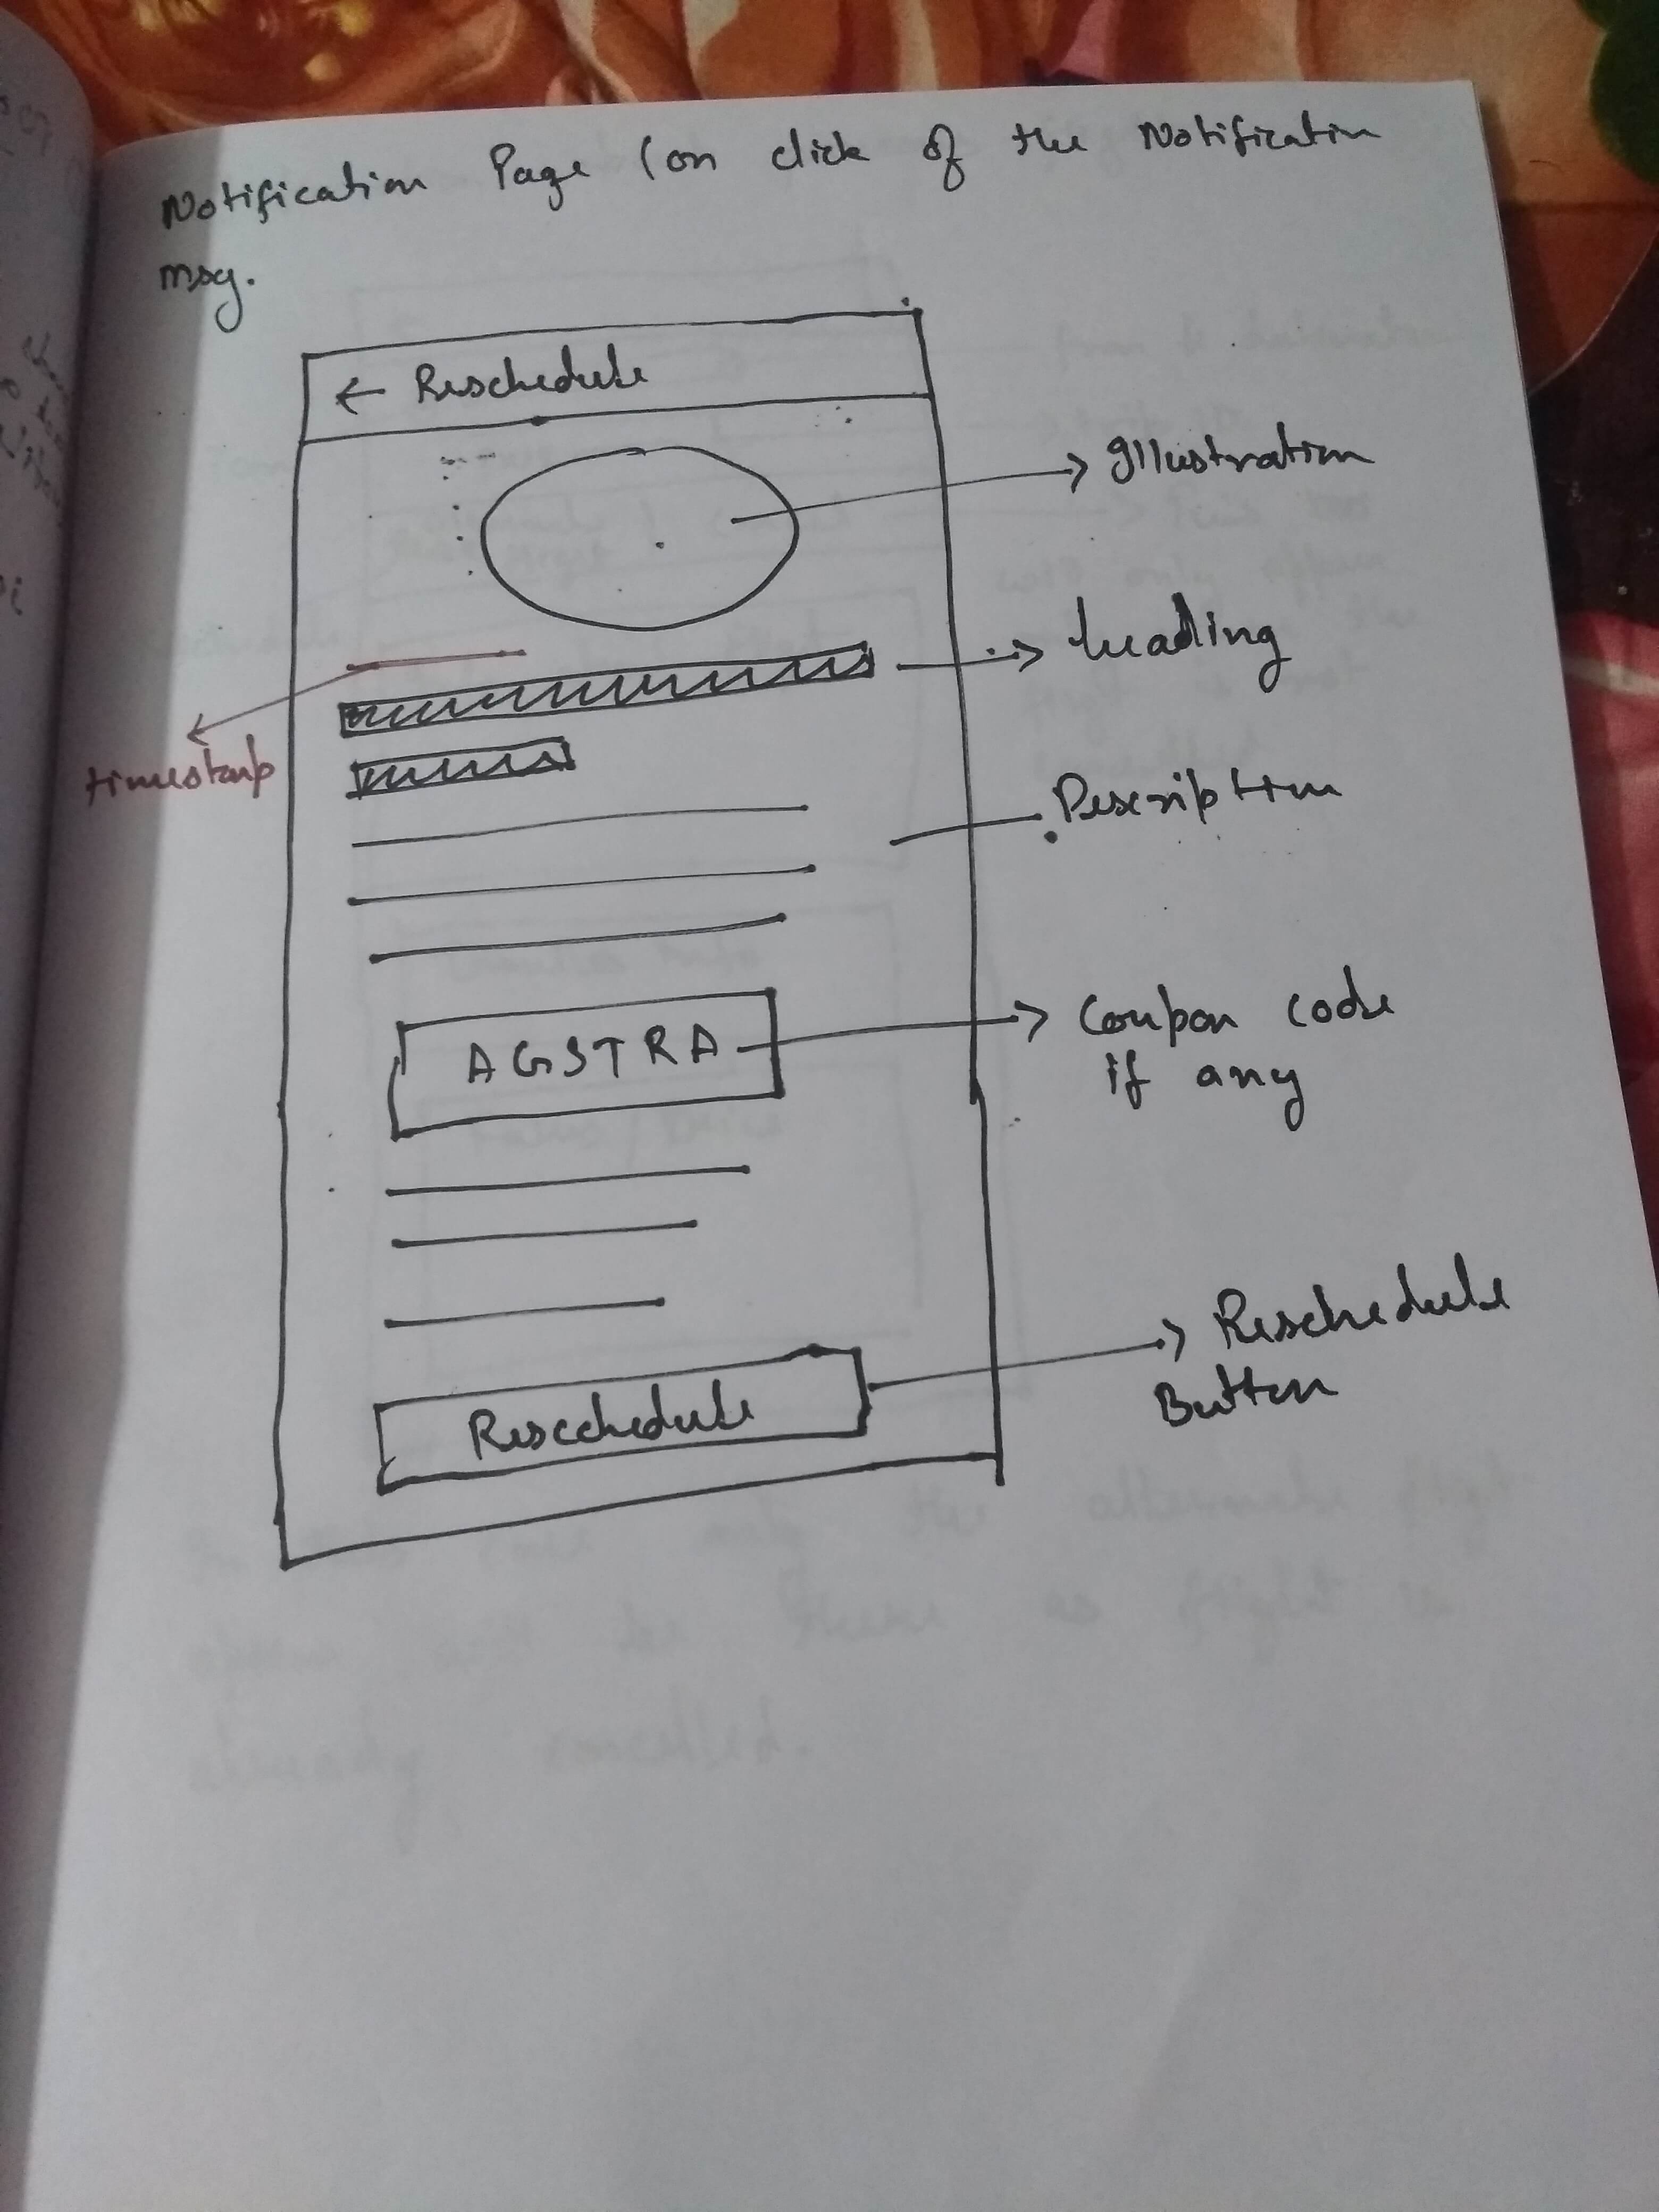 Notification Page (on click of the Notification
msg.
← Reschedule
Illustration
Heading
timestamp
Description
AGSTRA
Coupon code
if any
Reschedule
Button
Rescchedule